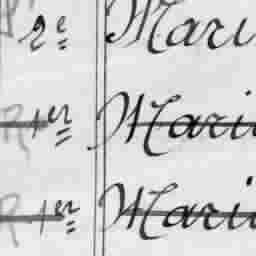 2e Mari
R 1er Maria
R 1er Maria